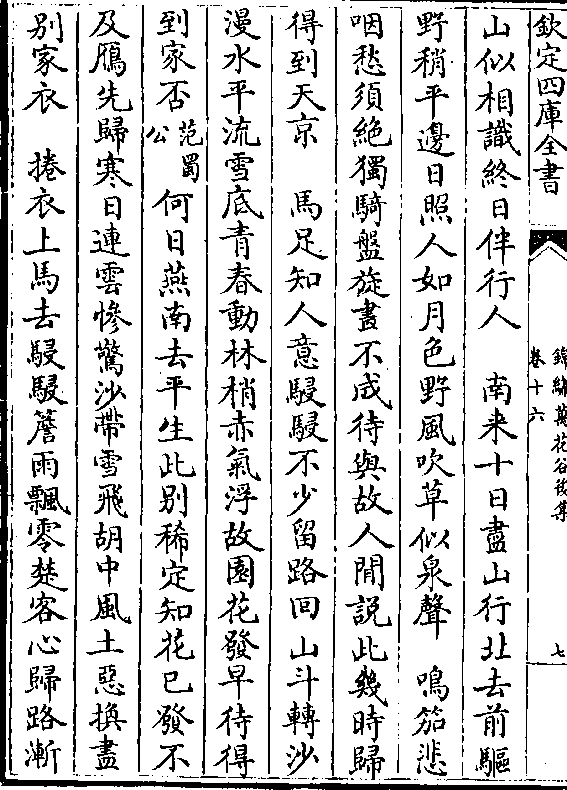 欽定四庫全書
錦繡萬花谷後集
卷十六
七
山似相識終日伴行人　南來十日盡山行北去前驅
野稍平邊日照人如月色野風吹草似泉聲　鳴笳悲
咽愁須絕獨騎盤旋畫不成待與故人閒説此幾時歸
得到天京　馬足知人意駸駸不少留路回山斗轉沙
漫水平流雪底青春動林梢赤氣浮故園花發早待得
到家否范蜀公　何日燕南去平生此别稀定知花已發不
及鴈先歸寒日連雲慘驚沙帶雪飛胡中風土惡換盡
别家衣　捲衣上馬去駸駸簷雨飄零楚客心歸路漸